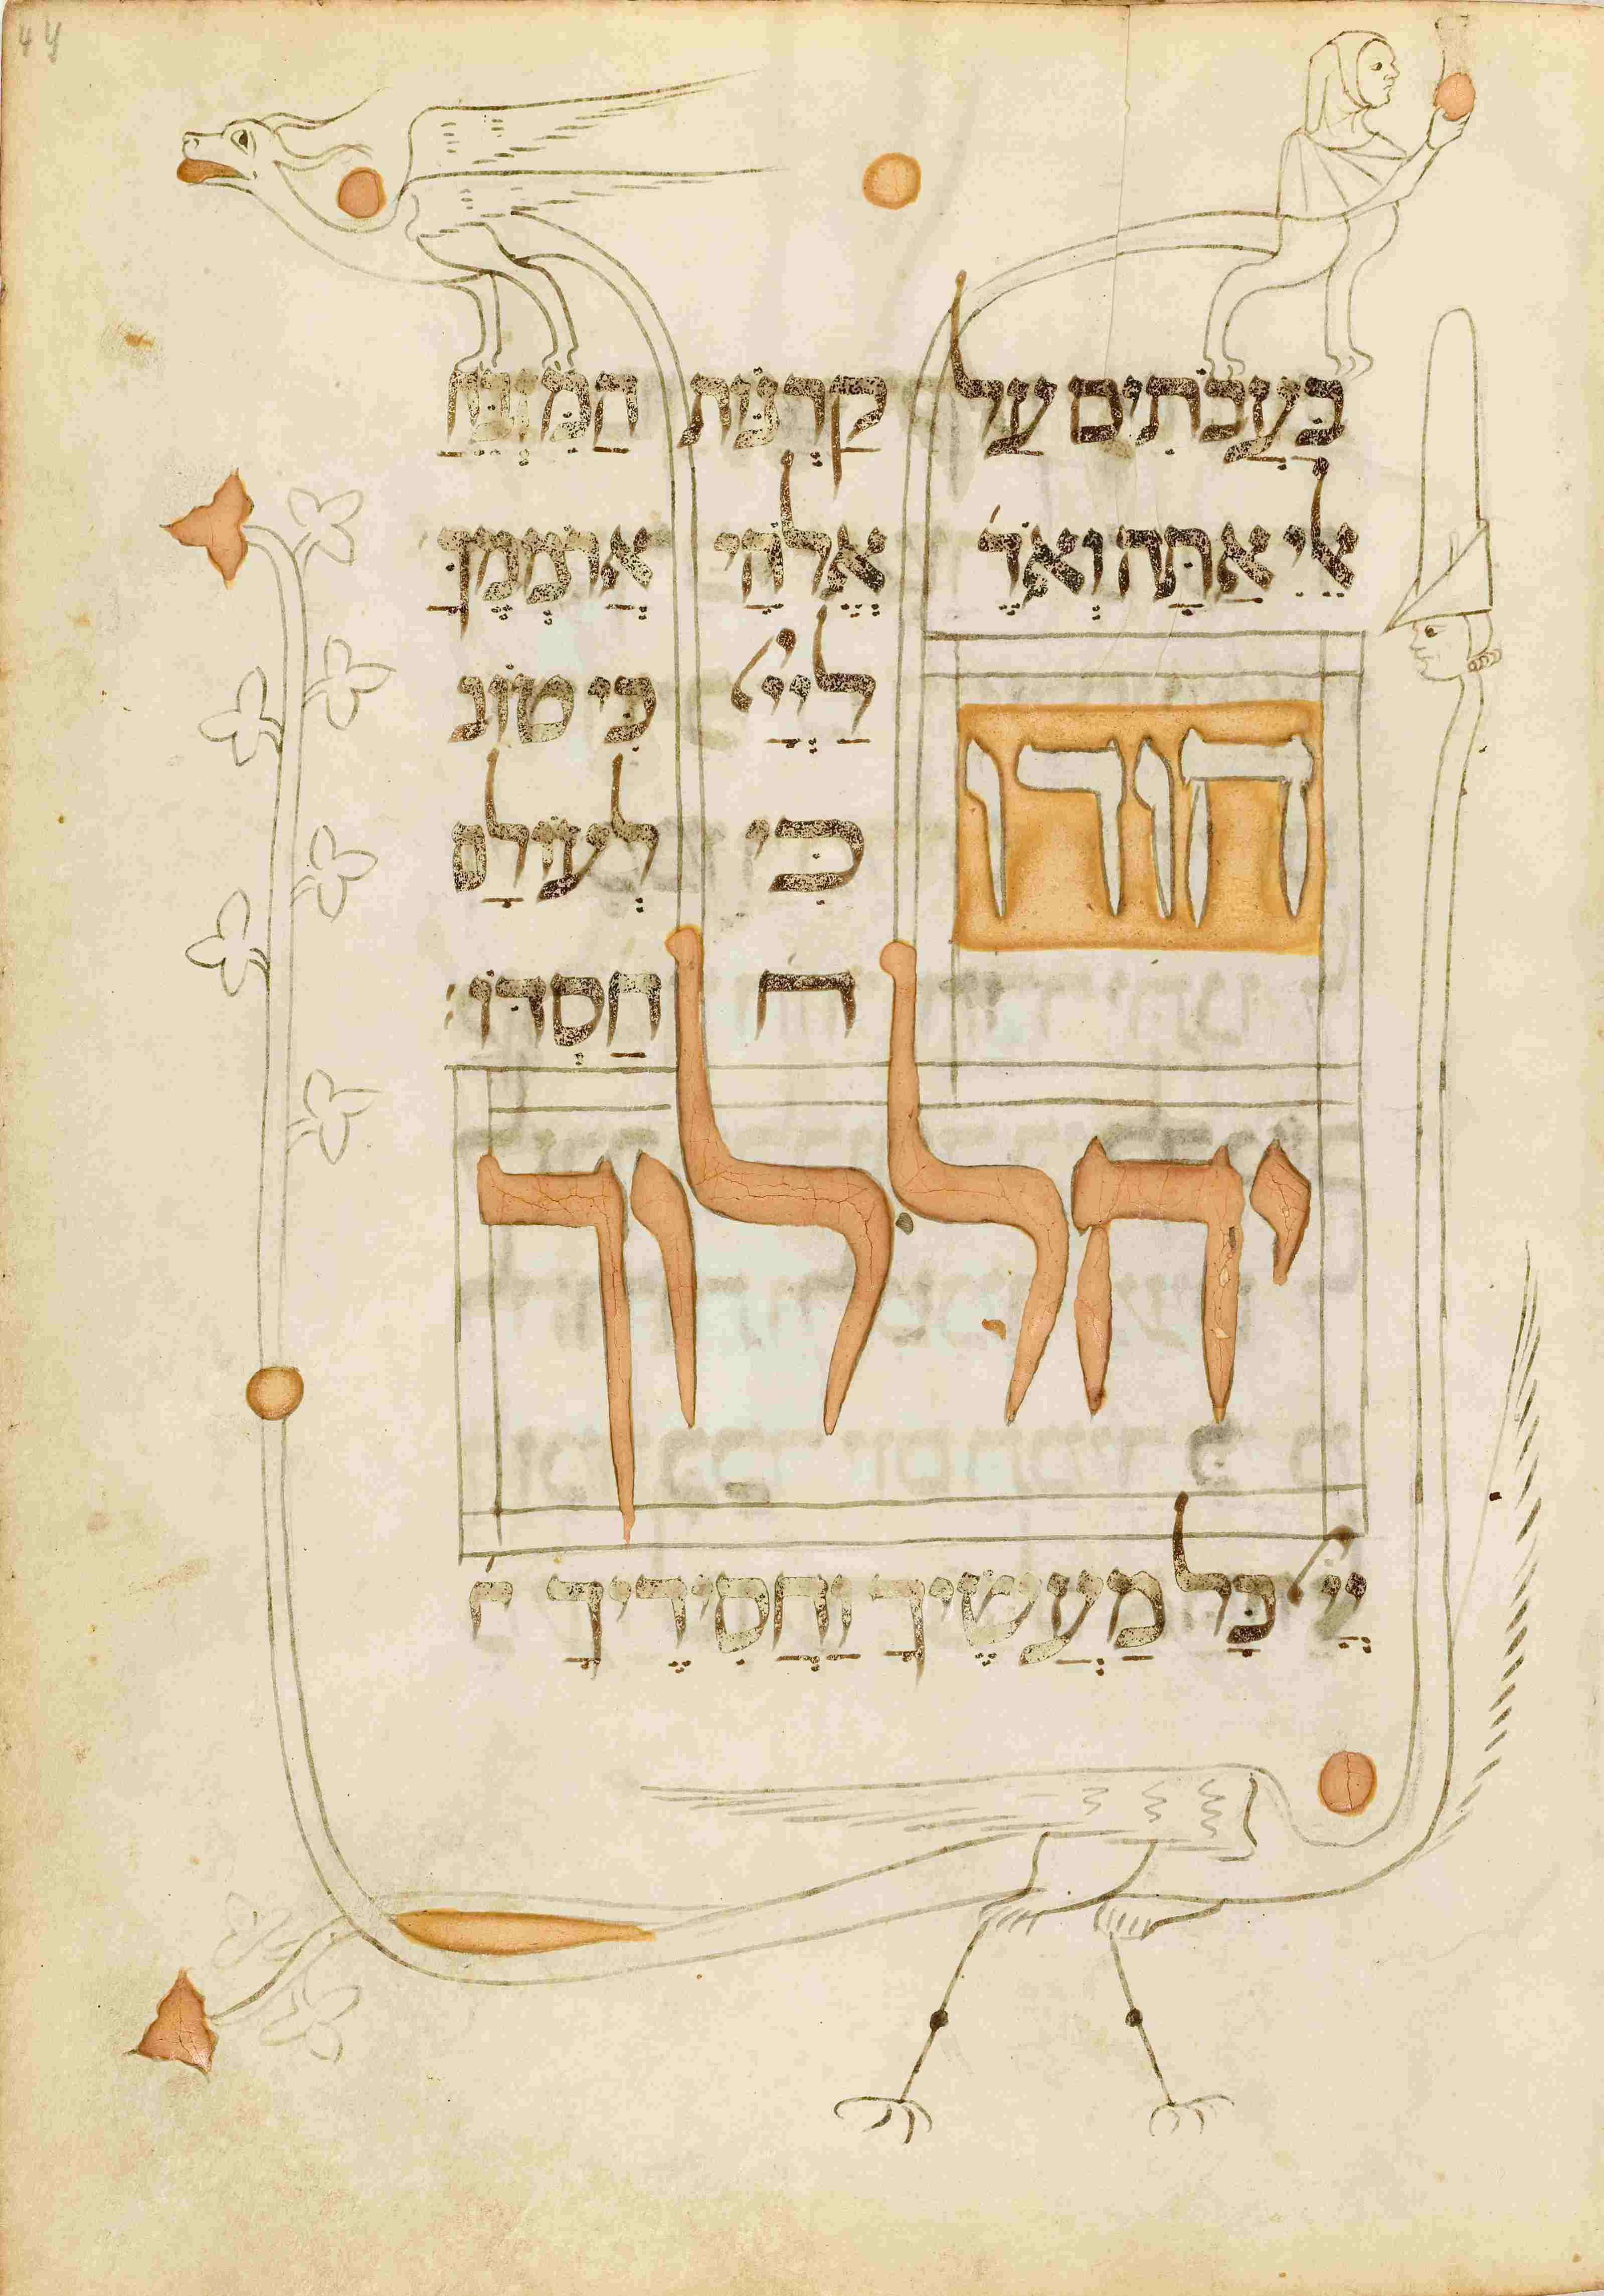 44
בַּעֲבֹתִים עַל קַרְנוֹת הַמִּזְבֵּחַ
אֵלִי אַתָּה וְאֹדֶ' אֱלֹהַי אֲרוֹמְמֶךָּ
הודו לַיְיָ כִּי טוֹב
כִּי לְעוֹלָם
ח חַסְדּוֹ:
יהללוך
יְיָ כָּל מַעֲשֶׂיךָ וַחֲסִידֶיךָ